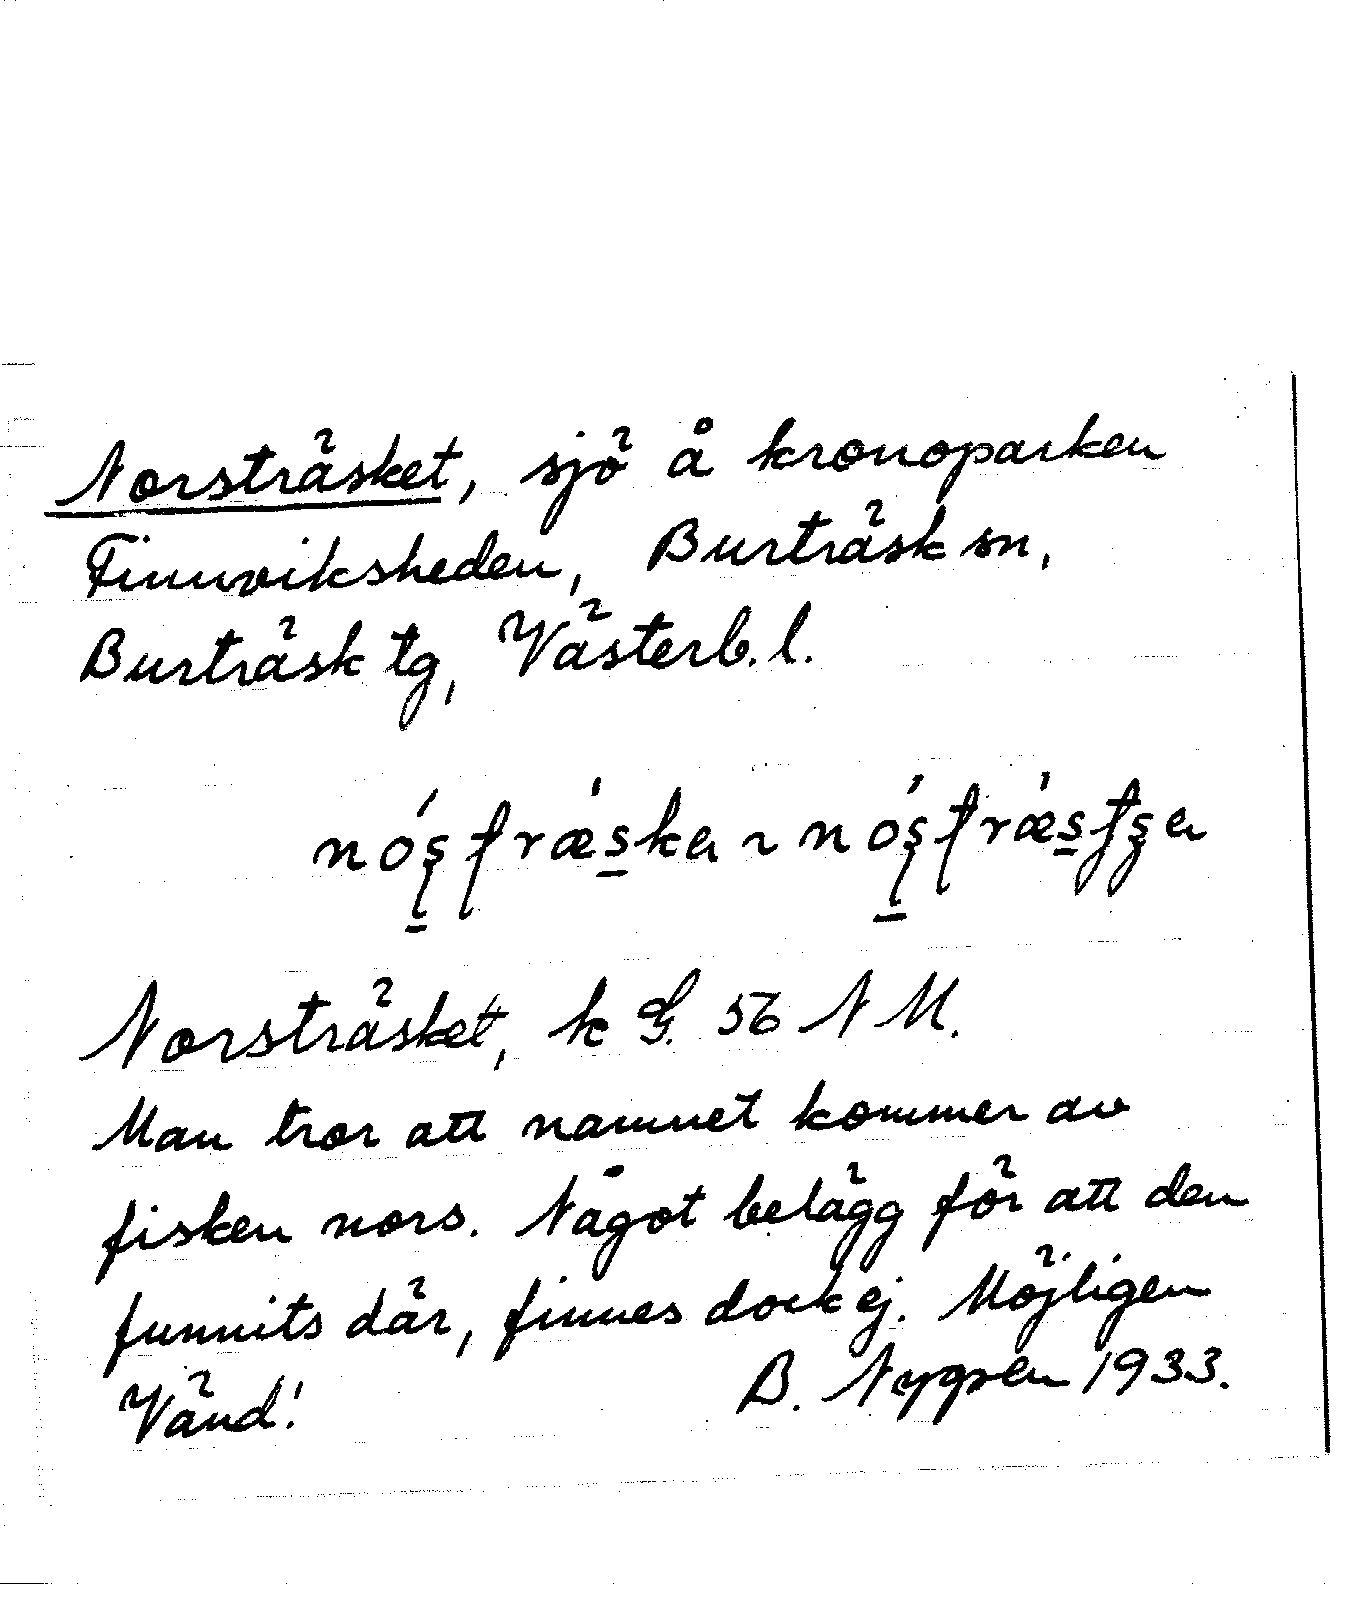 Norsträsket, sjö å kronoparken
Finnviksheden, Burträsk sn,
Burträsk tg, Västerb. l.
Norsträsket, k G. 56 N M.
Man tror att namnet kommer av
fisken nors. Något belägg för att den
funnits där, finnes dock ej. Möjligen
Vänd! B. Nygren 1933.